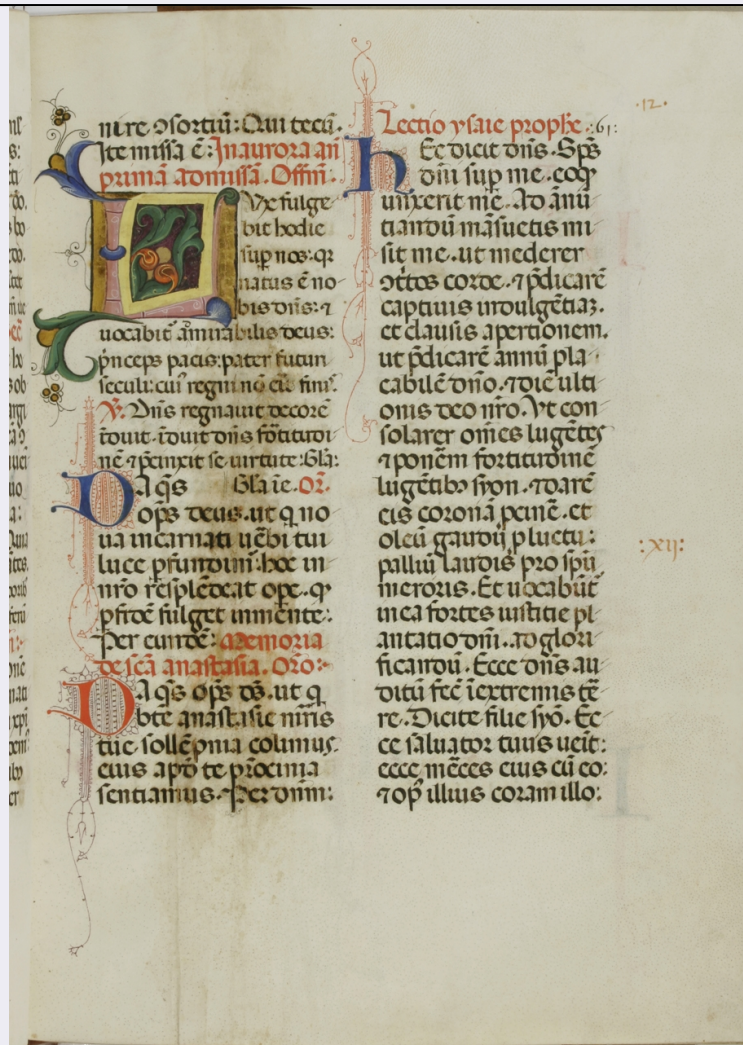 nire ꝯsortiū: Qui tecū.
Ite missa ē: In aurora an̄
primā ad missā. Offm̄.
LVx fulge
bit hodie
suꝑ nos: qꝛ
natus ē no
bis dn̄s: ⁊
uocabit᷑ a᷑mirabilis deus:
p̄nceps pacis: pater futuri
seculi: cui᷒ regni nō eī᷑ finis᷑.
℣. Dn̄s regnauit decorē
īduit. īduit dn̄s fōtitudi
nē ⁊ p̄cinxit se uirtute: Gl̄a:
Gl̄a īe. Oꝛ̄.
Da q̄s
op̄s deus. ut q̄ no
ua incarnati uēbi tui
luce ꝑfundim᷒: hoc in
nr̄o resplēdeat oꝑe. ꝙ
ꝑ fidē fulget in mente:
Per eundē: Memoria
de sc̄a anastasia. Oꝛō:
Da q̄s op̄s ds̄. ut q̄
bt̄e anastasie mr̄is
tue sollēpnia colimus:
eius apō te pr̄ocinia
sentiamus. Per dn̄m:
·12·
Lectio ysaie prophē. 61:
hEc dicit dn̄s. Sp̄s
dn̄i suꝑ me. eo ꝙ
unxerit me. Ad ānū
tiandū māsuetis mi
sit me. ut mederer
ꝯt̄tos corde. ⁊ p̄dicarē
captiuis indulgētiaꝫ.
et clausis apertionem.
ut p̄dicarē annū pla
cabilē dn̄o. ⁊ diē ulti
onis deo nr̄o. Vt con
solarer om̄es lugētes
⁊ ponē̄m fortitudinē
lugētibꝫ syon. ⁊ darē
eis coronā p cinē. et
oleū gaudij p luctu:
palliū laudis pro sp̄u
meroris. Et uocabūt᷑
in ea fortes iustitie pl
antatio dn̄i. ad glori
ficandū. Ecce dn̄s au
ditū fec̄ ī extremis tē
re. Dicite filie syō. Ec
ce saluator tuus ueīt:
ecce m̄ces eius cū eo:
⁊ op᷒ illius coram illo:
:xij: